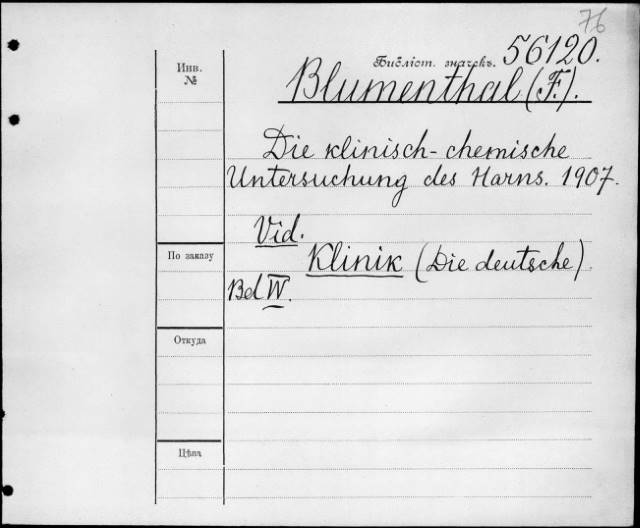 76
Инв.
№
Библіот. значекъ. 56120.
Blumenthal (F.).
Die klinisch-chemische
Untersuchung des Harns. 1907.
Vid.
По заказу
Klinik (Die deutsche)
Bd IV.
Откуда
Цѣна